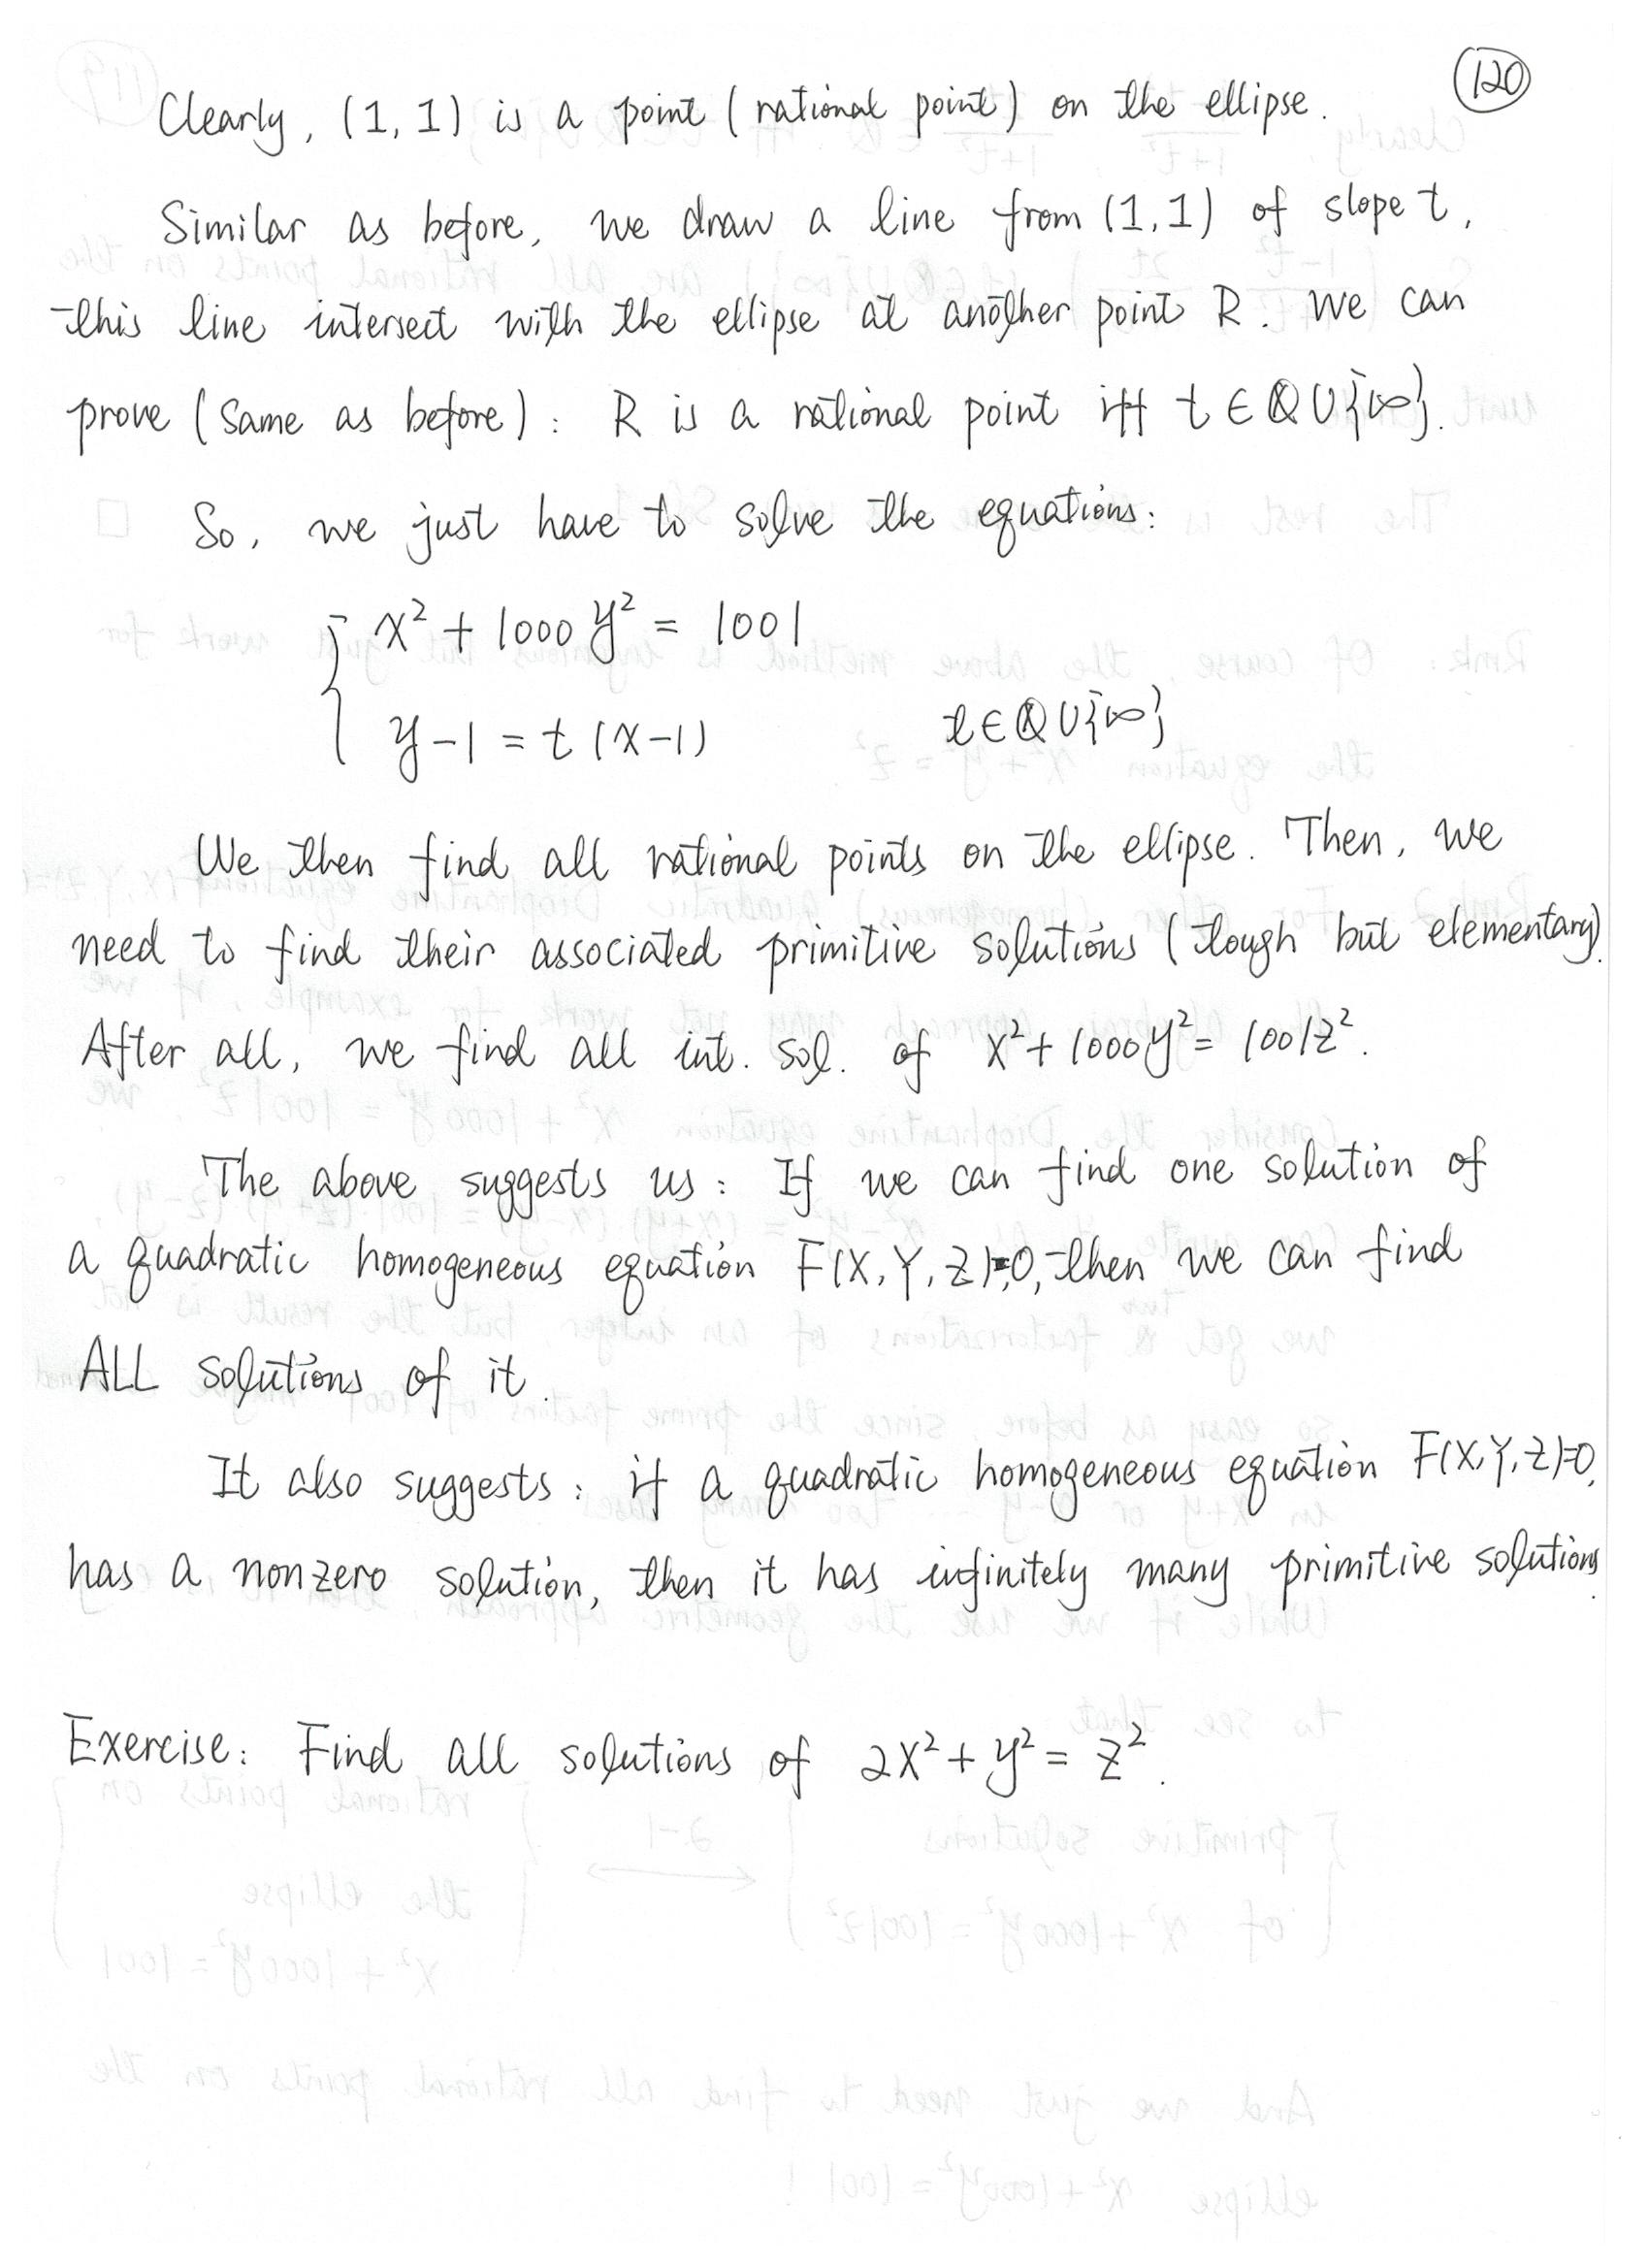 120
Clearly, (1, 1) is a point (rational point) on the ellipse.
Similar as before, we draw a line from (1, 1) of slope t,
this line intersect with the ellipse at another point R. We can
prove (same as before): R is a rational point iff t ∈ ℚ∪{∞}.
So, we just have to solve the equations:
x² + 1000y² = 1001
y-1 = t(x-1) t ∈ ℚ∪{∞}
We then find all rational points on the ellipse. Then, we
need to find their associated primitive solutions (tough but elementary).
After all, we find all int. sol. of x²+1000y²=1001z².
The above suggests us: If we can find one solution of
a quadratic homogeneous equation F(X,Y,Z)=0, then we can find
ALL solutions of it.
It also suggests: if a quadratic homogeneous equation F(X,Y,Z)=0,
has a nonzero solution, then it has infinitely many primitive solutions.
Exercise: Find all solutions of 2x²+y²=z².